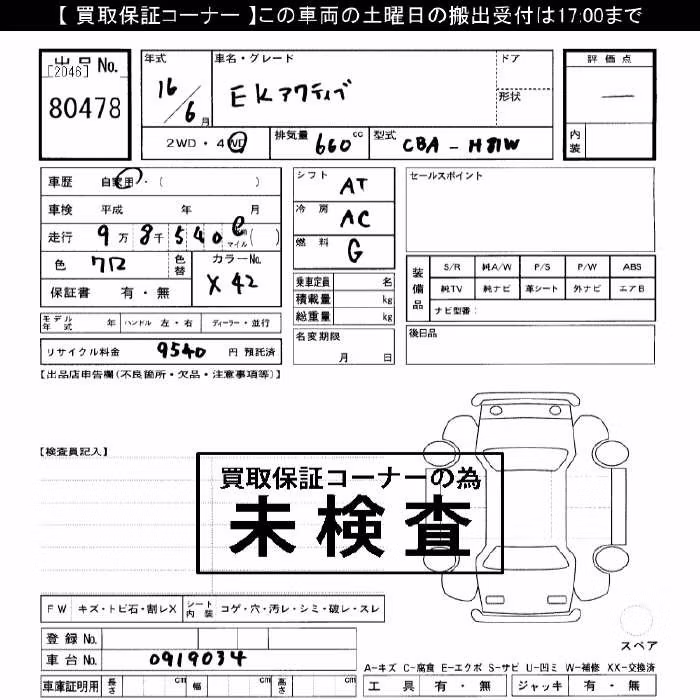 【 買取保証コーナー 】この車両の土曜日の搬出受付は17:00まで
出品 No.
[2046]
80478
年式
16/6月
車名・グレード
EKアクティブ
ドア
形状
評価点
—
内装
2WD・4WD
排気量 660 cc
型式 CBA - H81W
車歴 自家用・( )
車検 平成 年 月
走行 9万8千540 マイル( )
色 クロ
色替
カラーNo.
X42
保証書 有・無
シフト AT
冷房 AC
燃料 G
乗車定員 名
積載量 kg
総重量 kg
名変期限
月 日
セールスポイント
装備品
S/R 純A/W P/S P/W ABS
純TV 純ナビ 革シート 外ナビ エアB
ナビ型番:
後日品
モデル年式 年 ハンドル 左・右 ディーラー・並行
リサイクル料金 9540 円 預託済
【出品店申告欄(不良箇所・欠品・注意事項等)】
【検査員記入】
買取保証コーナーの為
未検査
FW キズ・トビ石・割レX シート内装 コゲ・穴・汚レ・シミ・破レ・スレ
登録 No.
車台 No. 0919034
車庫証明用 長さ cm 幅 cm 高さ cm
スペア
A-キズ C-腐食 E-エクボ S-サビ U-凹ミ W-補修 XX-交換済
工具 有・無 ジャッキ 有・無